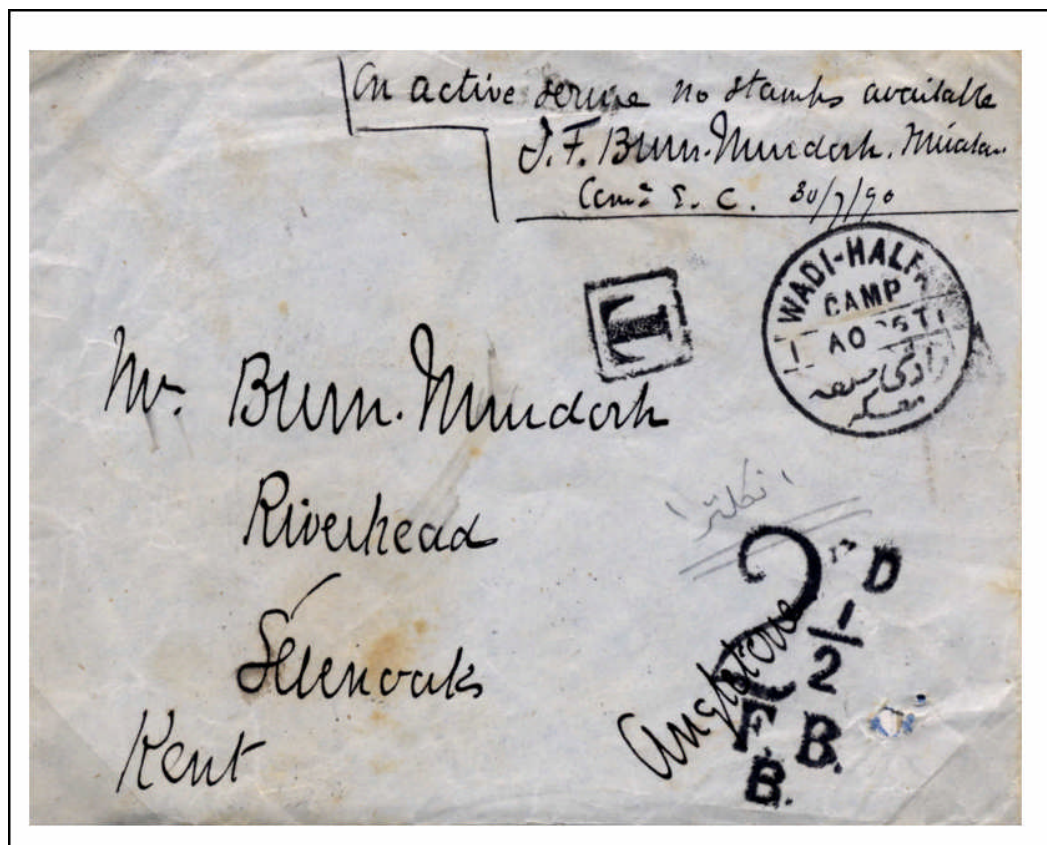 On active service no stamps available
J. F. Burn-Murdoch.
Comg E. C. 30/7/90
T
WADI-HALFA
CAMP
معسكر
Mr. Burn-Murdoch
Riverhead
Sevenoaks
Kent
انكلترا
2 1/2 D
F. B.
B.